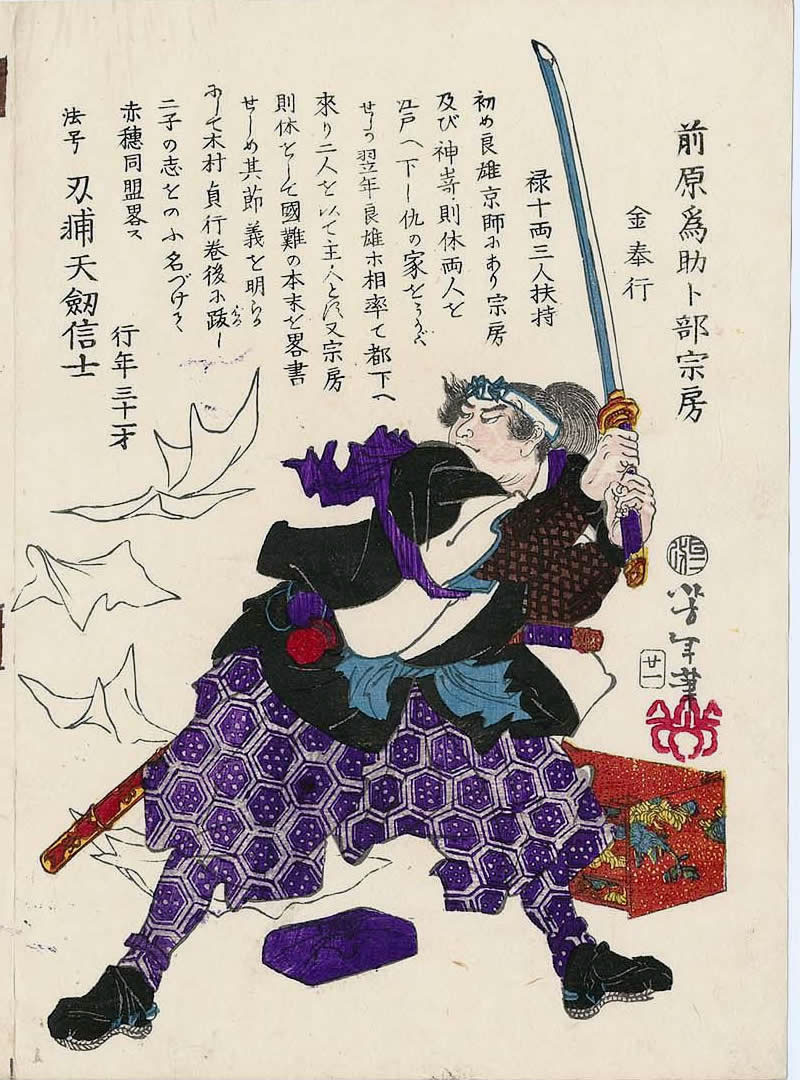 前原為助卜部宗房
金奉行
禄十両三人扶持
初め良雄京師にあり宗房
及び神嵜則休両人を
江戸へ下し仇の家をうかゞ
せしめ翌年良雄亦相率て都下へ
來り二人を以て主人とす又宗房
則休をして國難の本末を畧書
せしめ其節義を明らか
にして木村貞行巻後に跋し
二子の志をのふ名づけて
赤穂同盟畧ス
行年三十一才
法号 刃補天劔信士
芳年筆
廿一